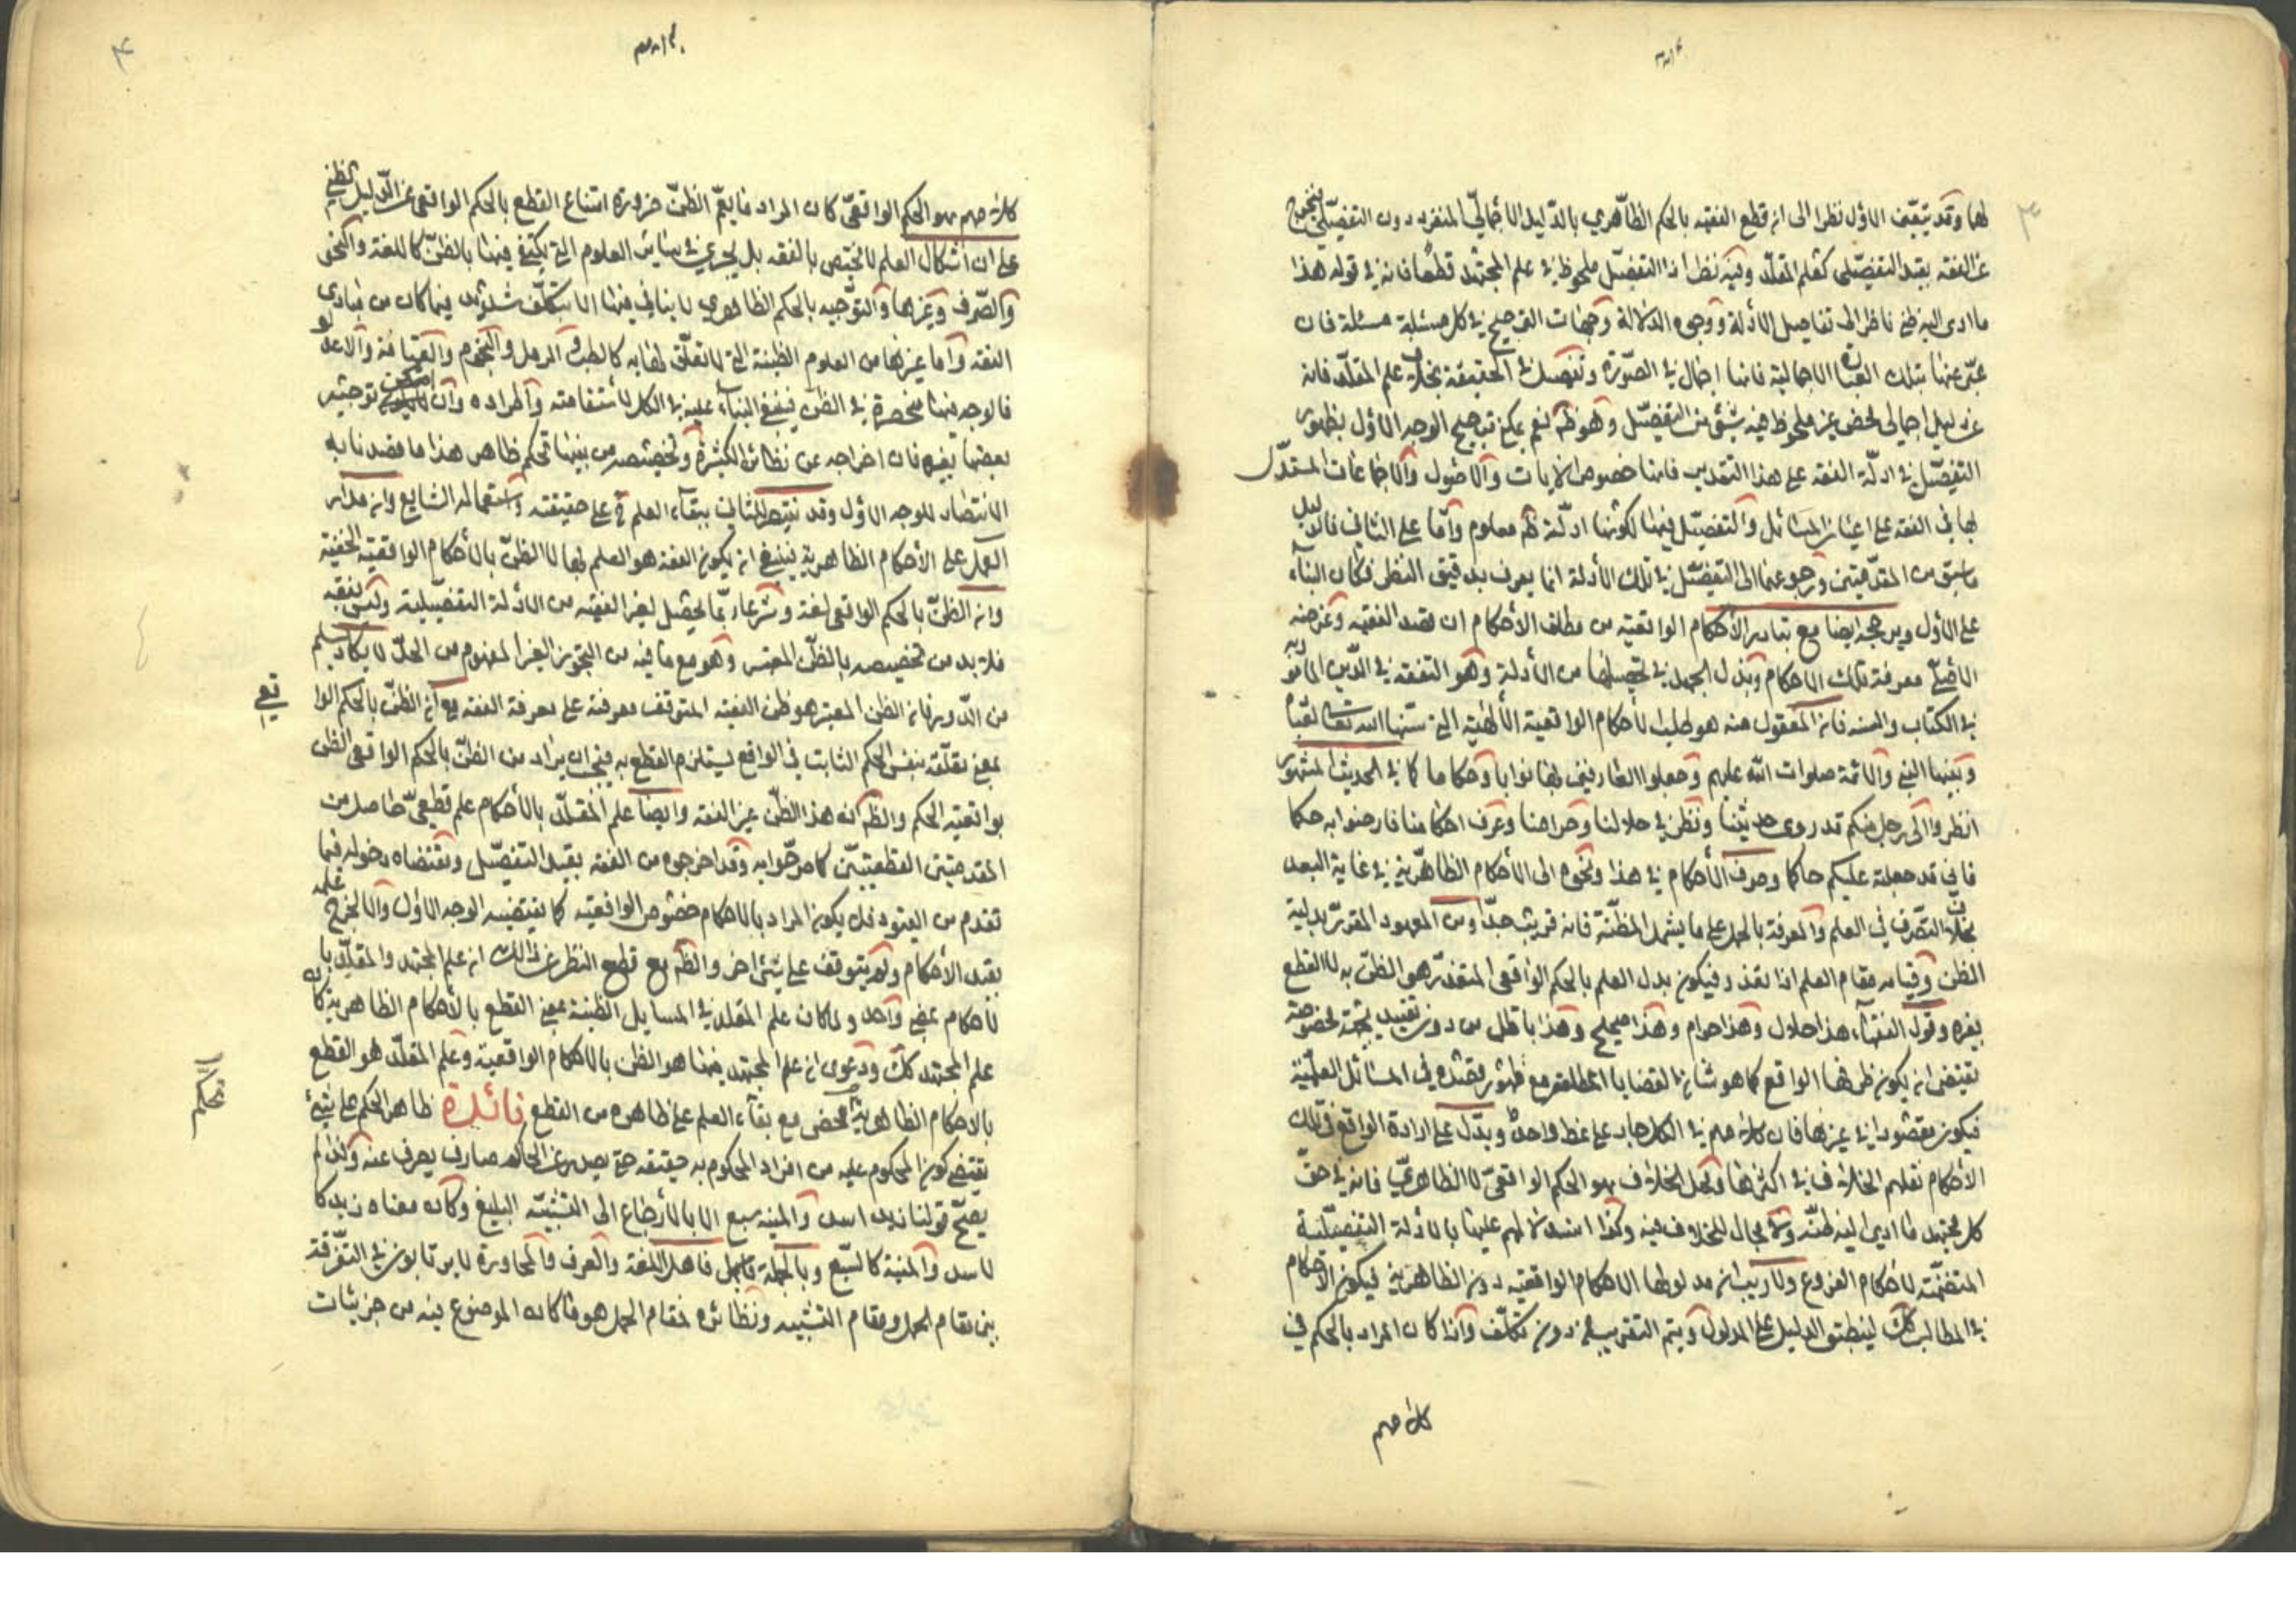 لها وقد يتعيّن الاول نظرا الى ان قطع الفقيه بالحكم الظاهري بالدّليل الاجماليّ المنفرد دون التفصيلي فيخرج
عن الفقه بقيد التفصيلى كعلم المقلّد وفيه نظر اذ التفصيل ملحوظ في علم المجتهد قطعا فانه في قوله هذا
ما ادى اليه ظني ناظر الى تفاصيل الأدلة ووجوه الدّلالة وجهات الترجيح في كل مسئلة مسئلة فان
عبّر عنها بتلك العبارة الاجمالية فانها اجمال في الصّورة وتفصيل في الحقيقة بخلاف علم المقلّد فانه
عن دليل اجمالى محض غير ملحوظ فيه شئ من التفصيل وهو ظم نعم يمكن ترجيح الوجه الاول بظهور
التفصيل في ادلّة الفقه على هذا التقدير فانها خصوص الايات والاصول والاجماعات المستدلّ
بها في الفقه على اعيان المسائل والتفصيل فيها لكونها ادلّة ظم معلوم وأمّا على الثاني فالدليل
ما سبق من المقدّمتين ورجوعها الى التفصيل في تلك الأدلة انما يعرف بدقيق النظر فكان البناء
على الاول ويرجحه ايضا مع تبادر الأحكام الواقعية من مطلق الأحكام ان مقصد الفقيه وغرضه
الأصلي معرفة تلك الاحكام وبذل الجهد في تحصيلها من الأدلة وهو التفقه في الدّين المأمور به
في الكتاب والسنه فان المعقول منه هو طلب الأحكام الواقعية الألهية التي سنّها الله تعالى
وبيّنها النبي والائمة صلوات الله عليهم وجعلوا العارفين بها نوابا وحكاما كما في الحديث المشهور
انظروا الى رجل منكم قد روى حديثنا ونظر في حلالنا وحرامنا وعرف احكامنا فارضوا به حكما
فاني قد جعلته عليكم حاكما وصرف الأحكام في هذا ونحوه الى الأحكام الظاهرية في غاية البعد
بخلاف التصّرف في العلم والمعرفة بالحمل على ما يشمل المظنّة فانه قريب جدّا ومن المعهود المقرّر بدلية
الظن وقيامه مقام العلم اذا تعذر فيكون بدل العلم بالحكم الواقعى المتعذّر هو الظنّ به لا القطع
بغيره وقول الفقهاء هذا حلال وهذا حرام وهذا صحيح وهذا باطل من دون تقييد بجهة مخصوصة
يقتضى ان يكون ظرفها الواقع كما هو شان القضايا المطلقة مع ظهور قصده في المسائل العلمية
فيكون مقصودا في غيرها فان كلامهم في الكل جار على نمط واحد ويدّل على ارادة الواقع في تلك
الأحكام نقلهم الخلاف في اكثرها ومحل الخلاف هو الحكم الواقعيّ لا الظاهريّ فانه في حقّ
كل مجتهد ما ادى اليه ظنّه ولا مجال للخلاف فيه وكذا استدلالهم عليها بالأدلة التفصيلية
المتضمّنة لأحكام الفروع ولا ريب ان مدلولها الاحكام الواقعيه دون الظاهرية فيكون الأحكام
في المطالب كك لينطبق الدليل على المدلول ويتم التقريب من دون تكلّف واذا كان المراد بالحكم في
كلامهم
كلامهم هو الحكم الواقعيّ كان المراد ما يعمّ الظنّ ضرورة امتناع القطع بالحكم الواقعى عن الدّليل الظني
على ان اشكال العلم لا يختص بالفقه بل يجرى في سائر العلوم التي يكتفى فيها بالظنّ كاللغة والنحو
والصّرف وغيرها والتوجيه بالحكم الظاهري لا يتاتى فيها الا بتكلّف شديد فيما كان من مبادى
الفقه وأما غيرها من العلوم الظنية التي لا تعلّق لها به كالطب والرمل والنجوم والقيافة
فالوجه فيها منحصر في الظنّ فينبغي البناء عليه في الكل لأستقامته واطراده وان امكن توجيه
بعضها بغيره فان اخراجه عن نظائره الكثيرة وتخصيصه من بينها تحكم ظاهر هذا ما قصدنا به
الانتصار للوجه الاول وقد ينتصر للثاني ببقاء العلم فيه على حقيقته واستعماله الشايع وان مدار
العمل على الأحكام الظاهرية فينبغي ان يكون الفقه هو العلم بها لا الظنّ بالأحكام الواقعية الخفية
وان الظنّ بالحكم الواقعى لغة وشرعا ربّما يحصل لغير الفقيه من الأدلة التفصيلية وليس بفقه
فلا بد من تخصيصه بالظنّ المعتبر وهو مع ما فيه من التجوّز الغير المفهوم من الحدّ لا يكاد يسلم
من الدّور فان الظن المعتبر هو ظن الفقيه المتوقف معرفته على معرفة الفقه مع ان الظنّ بالحكم الوا
قعي
بمعنى تعلّقه بنفس الحكم الثابت في الواقع يستلزم القطع به فيجب ان يراد من الظنّ بالحكم الواقعى الظن
بواقعية الحكم والظم انه هذا الظنّ غير الفقه وايضا علم المقلّد بالأحكام علم قطعيّ حاصل من
المقدمتين القطعيتين كما صرّحوا به وقد اخرجوه من الفقه بقيد التفصيل ومقتضاه دخوله فيما
تقدم من القيود فلا يكون المراد بالاحكام خصوص الواقعيه كما يقتضيه الوجه الاول والا لخرج علمه
بقيد الأحكام ولم يتوقف على شئ اخر والظم مع قطع النظر عن ذلك ان علم المجتهد والمقلّد با
لأحكام بمعنى واحد ولما كان علم المقلد في المسايل الظنية بمعنى القطع بالأحكام الظاهرية كان
علم المجتهد كك ودعوى ان علم المجتهد فيها هو الظن بالاحكام الواقعية وعلم المقلّد هو القطع
بالاحكام الظاهرية تحكم محض مع بقاء العلم على ظاهره من القطع فائدة ظاهر الحكم على شئ
يقتضى كون المحكوم عليه من افراد المحكوم به حقيقه حتى يصدر عن الحاكم صارف يصرف عنه ولذا لم
يصحّ قولنا زيد اسد والمنية سبع الا بالأرجاع الى التشبيه البليغ وكان معناه زيد كا
لاسد والمنية كالسّبع وبالجملة فاهل اللغة والعرف والمحاورة لا يرتابون في التفرقة
بين مقام الحمل ومقام التشبيه ونظائره فمقام الحمل هو ما كان الموضوع فيه من جزئيات